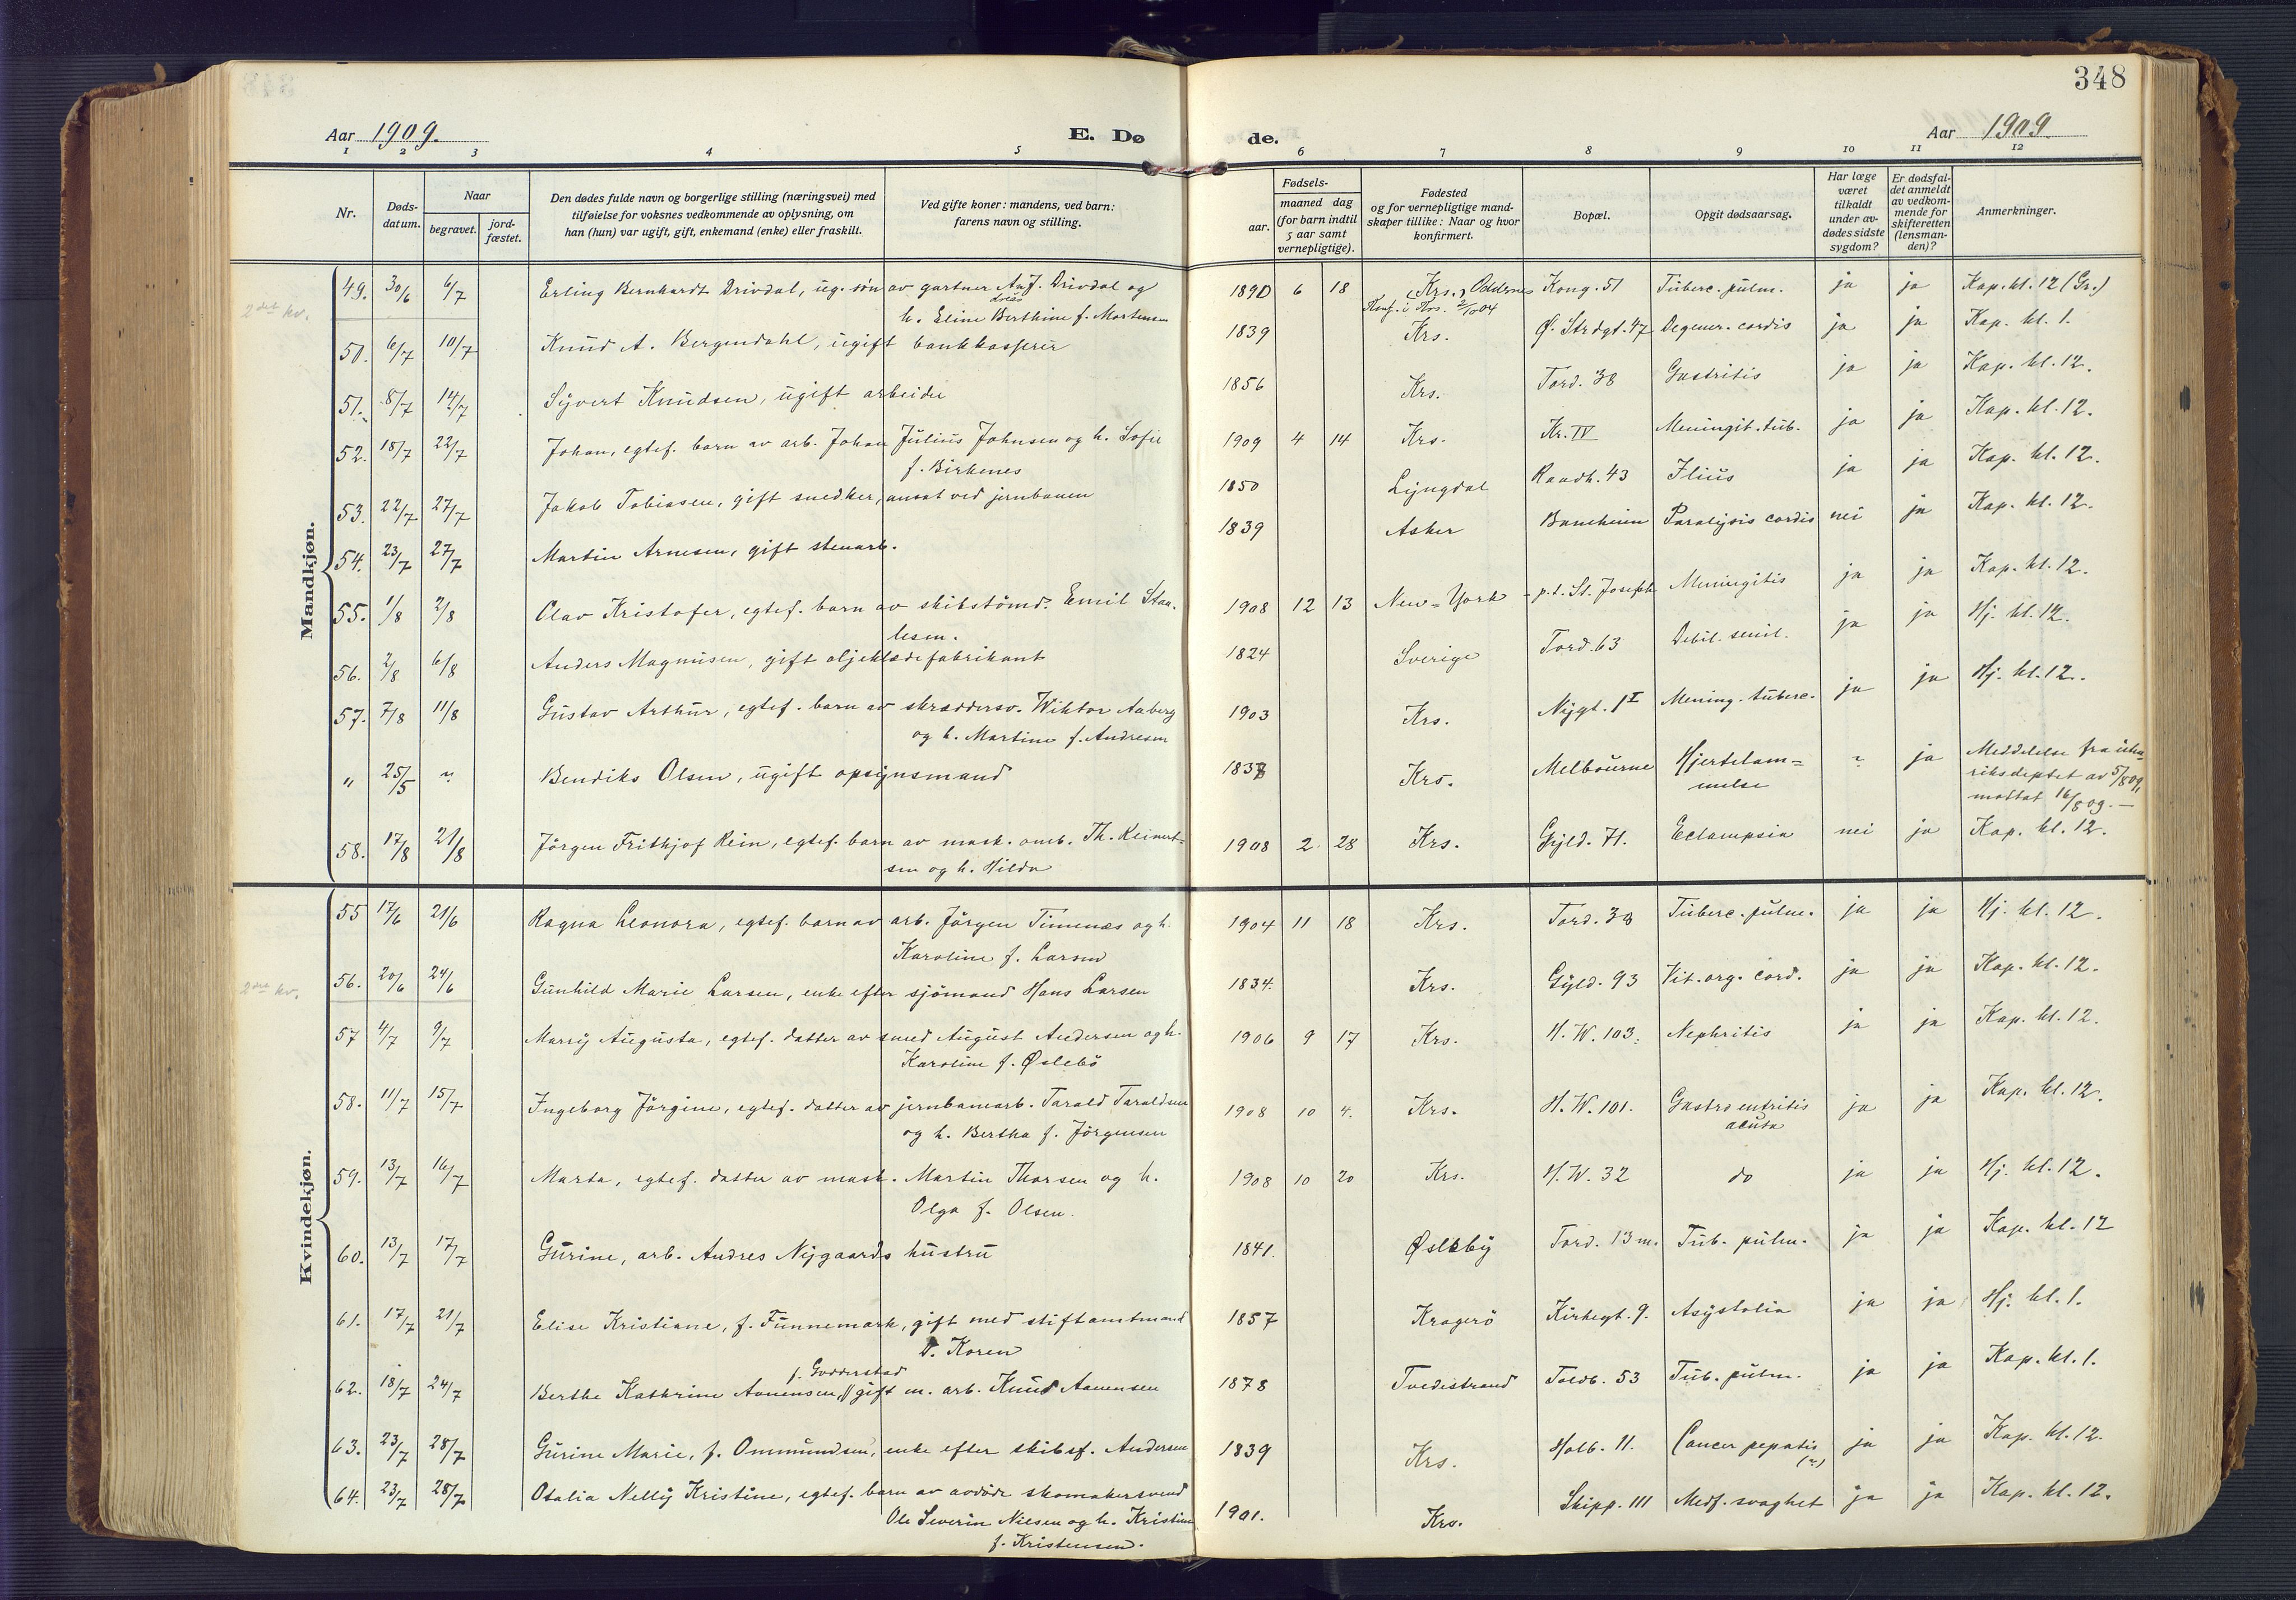 348
Aar 1909. E. Dø de. Aar 1909.
1 2 3 4 5 6 7 8 9 10 11 12
Nr. Døds-datum. Naar begravet. jord-fæstet. Den dødes fulde navn og borgerlige stilling (næringsvei) med tilføielse for voksnes vedkommende av oplysning, om han (hun) var ugift, gift, enkemand (enke) eller fraskilt. Ved gifte koner: mandens, ved barn: farens navn og stilling. Fødsels- aar. maaned dag (for barn indtil 5 aar samt vernepligtige). Fødested og for vernepligtige mand-skaper tillike: Naar og hvor konfirmert. Bopæl. Opgit dødsaarsag. Har læge været tilkaldt under av-dødes sidste sygdom? Er dødsfal-det anmeldt av vedkom-mende for skifteretten (lensman-den)? Anmerkninger.
Mandkjøn.
2det kv.
49. 30/6 6/7 Erling Bernhardt Drivdal, ug. søn av gartner Auf. Drivdal og 1890 6 18 (Krs.) Oddernes Kong. 51 Tuberc. pulm. ja ja Kap. kl. 12 (Gr.)
h. Eline Berthine f. Mortensen Konf. i Krs. 2/10 04
50. 6/7 10/7 Knud A. Bergendahl, ugift bankkasserer 1839 Krs. Ø. Strdgt. 47 Degener. cordis ja ja Kap. kl. 1.
51. 8/7 14/7 Syvert Knudsen, ugift arbeider 1856 Krs. Tord. 38 Gastritis ja ja Kap. kl. 12.
52. 18/7 22/7 Johan, egtef. barn av arb. Johan Julius Johnsen og h. Sofie 1909 4 14 Krs. Kr. IV Meningit. tub. ja ja Kap. kl. 12.
f. Birkenes
53. 22/7 27/7 Jakob Tobiasen, gift snedker, ansat ved jernbanen 1850 Lyngdal Raadh. 43 Ilius ja ja Kap. kl. 12.
54. 23/7 27/7 Martin Arnesen, gift stenarb. 1839 Asker Baneheien Paralysis cordis nei ja Kap. kl. 12.
55. 1/8 2/8 Olav Kristofer, egtef. barn av skibstømd. Emil Staa- 1908 12 13 New-York p.t. St. Joseph Meningitis ja ja Kap. kl. 12.
lesen.
56. 2/8 6/8 Anders Magnusen, gift oljeklædefabrikant 1824 Sverige Tord. 63 Debil. senil. ja ja Hj. kl. 12.
57. 7/8 11/8 Gustav Arthur, egtef. barn av skræddersv. Wiktor Aaberg 1903 Krs. Nygt. 1 I Mening. tuberc. ja ja Hj. kl. 12.
og h. Martine f. Andresen
" 25/5 " Bendiks Olsen, ugift opsynsmand 1838 Krs. Melbourne Hjertelam= " ja Meddelelse fra uten
melse riksdeptet av 5/8 09,
mottat 16/8 09. —
58. 17/8 21/8 Jørgen Frithjof Rein, egtef. barn av mask. omb. Th. Reinert= 1908 2 28 Krs. Gyld. 71. Eclampsia nei ja Kap. kl. 12.
sen og h. Hilda
Kvindekjøn.
55 17/6 21/6 Ragna Leonora, egtef. barn av arb. Jørgen Timenæs og h. 1904 11 18 Krs. Tord. 38 Tuberc. pulm. ja ja Hj. kl. 12.
Karoline f. Larsen
2det kv.
56. 20/6 24/6 Gunhild Marie Larsen, enke efter sjømand Hans Larsen 1834. Krs. Gyld. 93 Vit. org. cord. ja ja Kap. kl. 12.
57 4/7 9/7 Marry Augusta, egtef. datter av smed August Andersen og h. 1906 9 17 Krs. H. W. 103. Nephritis ja ja Kap. kl. 12.
Karoline f. Øslebø
58. 11/7 15/7 Ingeborg Jørgine, egtef. datter av jernbanearb. Tarald Taraldsen 1908 10 4. Krs. H. W. 101. Gastro entritis ja ja Kap. kl. 12.
og h. Bertha f. Jørgensen acuta
59. 13/7 16/7 Marta, egtef. datter av mask. Martin Thorsen og h. 1908 10 20 Krs. H. W. 32 do ja ja Hj. kl. 12.
Olga f. Olsen.
60. 13/7 17/7 Gurine, arb. Andres Nygaards hustru 1841. Øsleby Tord. 13 m. Tub. pulm. ja ja Kap. kl. 12
61. 17/7 21/7 Elise Kristiane, f. Funnemark, gift med stiftamtmand 1857 Kragerø Kirkegt. 9. Asystolia ja ja Hj. kl. 1.
D. Koren
f. Godderstad
62. 18/7 24/7 Berthe Kathrine Aanensen, // gift m. arb. Knud Aanensen 1878 Tvedestrand Toldb. 53 Tub. pulm. ja ja Kap. kl. 1.
63. 23/7 28/7 Gurine Marie, f. Ommundsen, enke efter skibsf. Andersen 1839 Krs. Holb. 11. Cancer pepatis ja ja Kap. kl. 12.
64. 23/7 28/7 Otalia Nelly Kristine, egtef. barn av avdøde skomakersvend 1901. Krs. Skipp. 111 Medf. svaghet ja ja Kap. kl. 12.
Ole Severin Nilsen og h. Kristine
f. Kristensen.